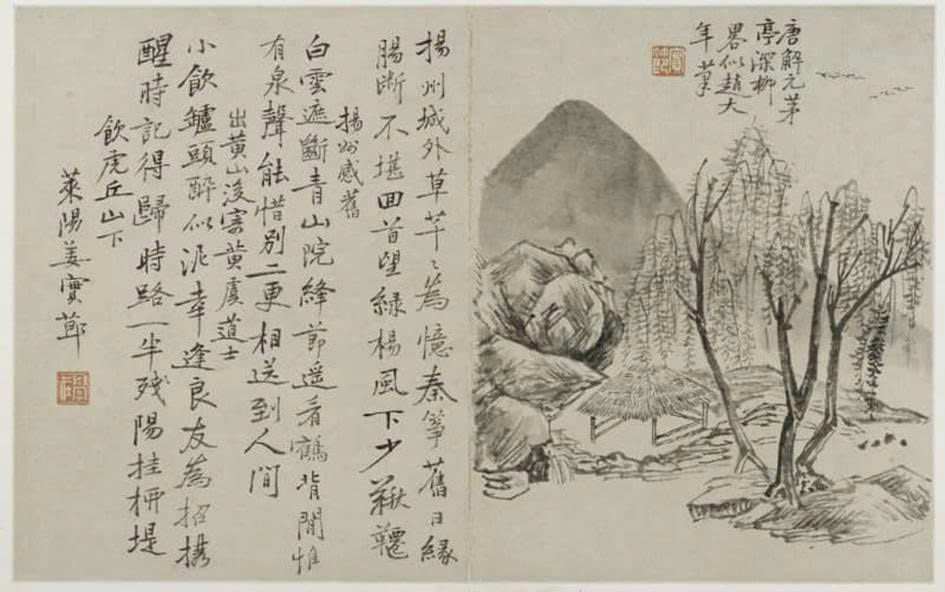 唐解元茅
亭深柳
畧似趙大
年筆
揚州城外草芊〻為憶秦箏舊日緣
腸斷不堪回首望綠楊風下少鞦韆
揚州感舊
白雲遮斷青山院絳節遥看鶴背閒惟
有泉聲能惜別二更相送到人間
出黄山後寄黄虞道士
小飲鑪頭醉似泥幸逢良友為招携
醒時記得歸時路一半殘陽挂柳堤
飲虎丘山下
萊陽姜實節